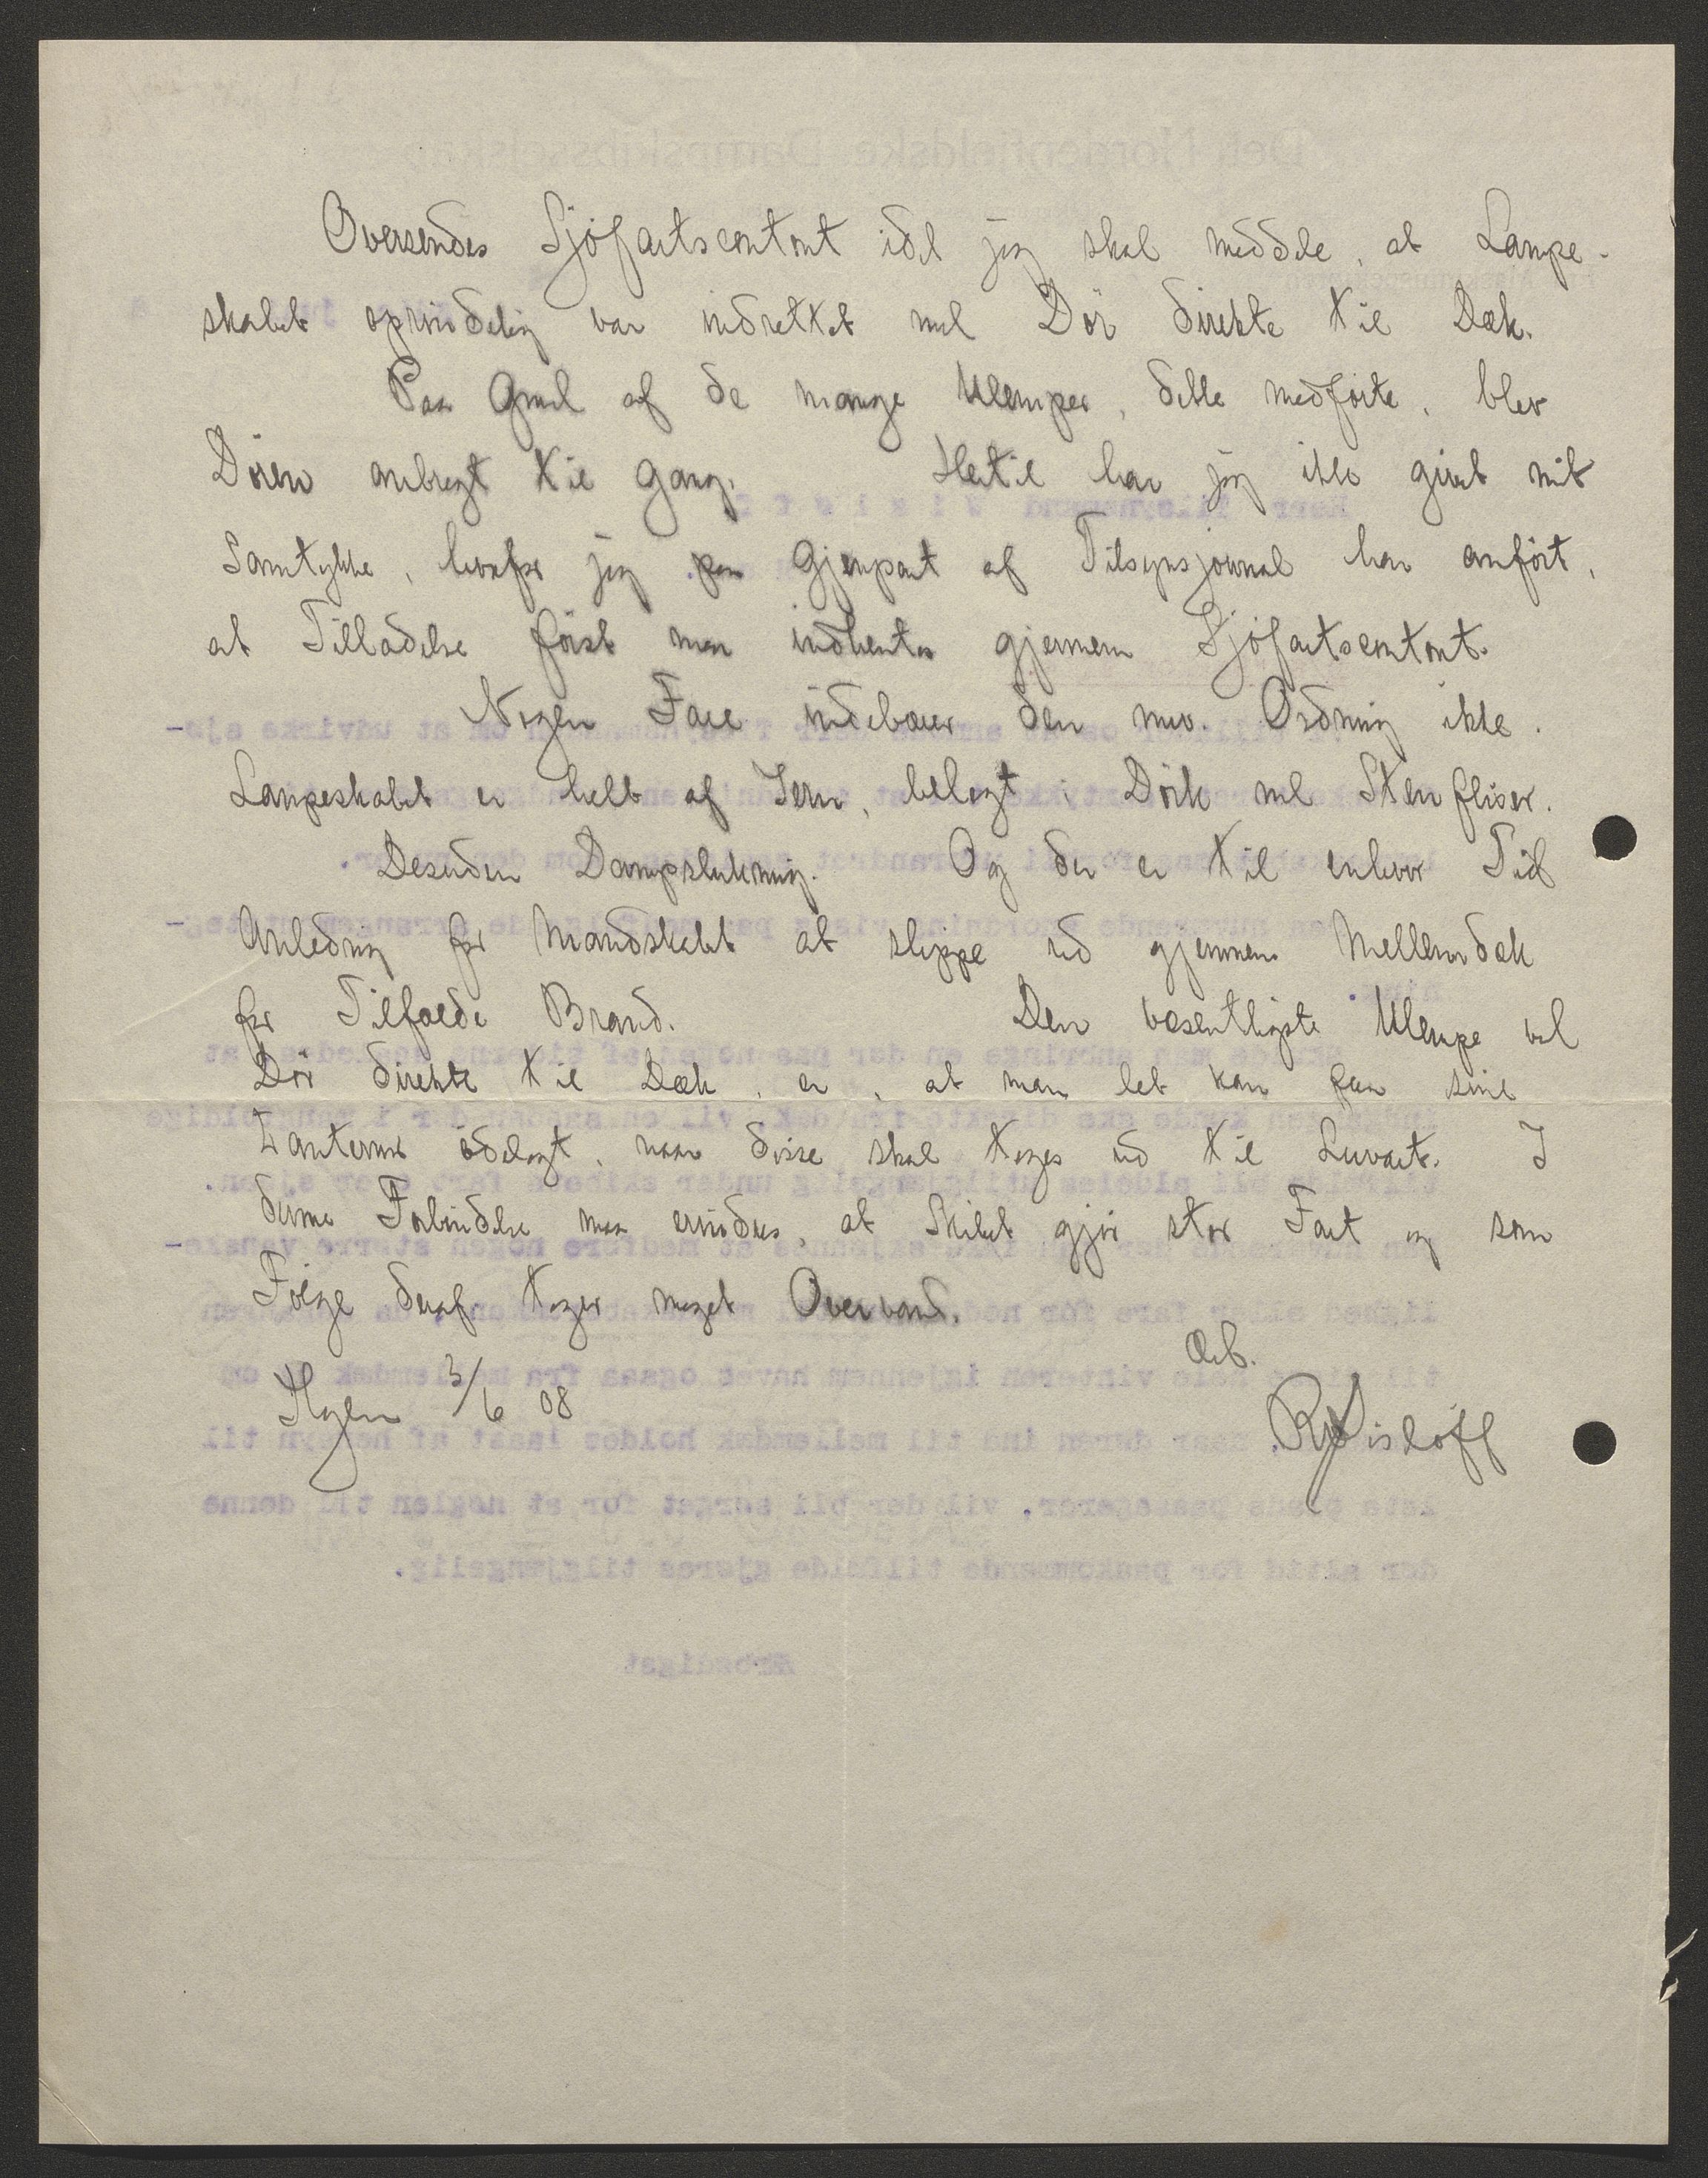 Oversendes Sjöfartscontoret idet jeg skal meddele, at Lampe-
skabet oprindelig var indrettet med Dör direkte til Dæk.
Paa Grund af de mange Ulemper, dette medförte, blev
Dören anbragt til Gang. Hertil har jeg ikke givet mit
Samtykke, hvorfor jeg paa Gjenpart af Tilsynsjournal har anfört,
at Tilladelse först maa indhentes gjennem Sjöfartscontoret.
Nogen Fare indebærer den nuv. Ordning ikke.
Lampeskabet er helt af Jern, belagt i Dörk med Stenfliser.
Desuden Dampslukning. Og der er til enhver Tid
Anledning for Mandskabet at slippe ud gjennem Mellemdæk
for Tilfælde Brand. Den væsentligste Ulempe ved
Dör direkte til Dæk, er, at man let kan faa sine
Lanterner ödelagt, naar disse skal tages ud til Luvart. I
denne Forbindelse maa erindres, at Skibet gjör stor Fart og som
Fölge deraf tager meget Overvand.
Ærb.
3/6 08